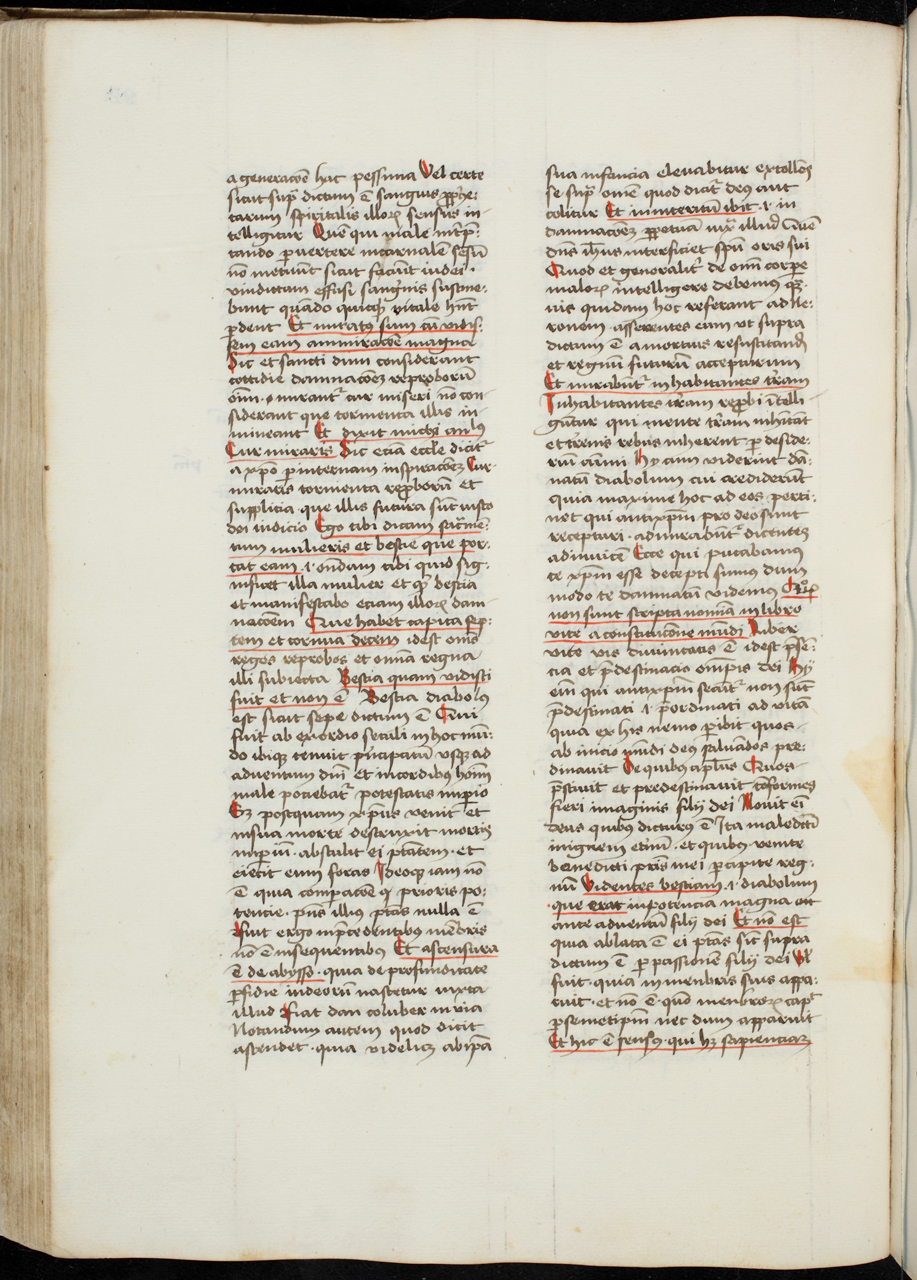 a generac̃oẽ hac pessima Vel certe
sicut sup̃ dictum ẽ sanguis ꝓph̃e⸗
tarum spiritalis illoꝝ sensus in⸗
telligitur Quẽ qui male int̃p̃⸗
tando ꝑuertere incarnalẽ sensũ
nõ metuũt sicut faciũt iudei ·
vindictam effusi sanguinis sustine⸗
bunt quãdo quicq̃ vitale hñt
ꝑdent Et miratꝰ sum cũ vidis⸗
sem eam ammirac̃oẽ magna
Sic et sancti dum considerant
cottidie damnac̃oẽz reproborũ
om̃i · mirantᷣ cur miseri nõ con⸗
siderant que tormenta illis in⸗
mineant Et dixit michi anlꝰs
Cur miraris Sic eciã eccl̃e dicitᷣ
a xp̃o ꝑ internam inspirac̃oẽz Cur
miraris tormenta reꝓborũ et
supplicia que illis futura sũt iusto
dei iudicio Ego tibi dicam sac̃rmẽ⸗
tum mulieris et bestie que por⸗
tat eam .i. ondam tibi quid sig⸗
nificet illa mulier et q̃ bestia
et manifestabo eciam illoꝝ dam⸗
nac̃oem Que habet capita sep⸗
tem et cornua decem idest om̃s
reges reprobos et om̃ia regna
illi subiecta Bestia quam vidisti
fuit et non ẽ Bestia diabolꝰ
est sicut sepe dictum ẽ Qui
fuit ab exordio seculi in hoc mũ⸗
do ibiqꝫ tenuit p̃ncipatũ vsqꝫ ad
aduentum dñi et in cordibus hoĩm
male pociebatᷣ potestatis imperio
Sꝫ postquam xp̃us venit et
in sua morte destruxit mortis
imꝑiũ · abstulit ei p̃tatem · et
eiecit eum foras Ideoqꝫ iam nõ
ẽ quia comparac̃oẽ prioris po⸗
tencie · p̃ns illius p̃tas nulla ẽ
Fuit ergo in p̃cedentibus mẽbris
nõ ẽ in sequentibus Et ascensura
ẽ de abysso · quia de profunditate
ꝑfidie iudeorũ nascetur iuxta
illud Fiat dan coluber in via
Notandum autem quod dicit
ascendet · quia videlicꝫ ab ip̃a
sua infancia eleuabitur extollẽs
se sup̃ om̃e quod dicitᷣ deus aut
colitur Et in interitũ ibit .i. in
damnac̃oẽz ꝑpetuã iux̃ illud Quẽ
dñs ih̃us interficiet sp̃u oris sui
Quod et generalit̃ de om̃i corpore
maloꝝ intelligere debemus qᷣ⸗
uis quidam hoc referant ad ne⸗
ronem · asserentes eum vt supra
dictum ẽ a mortuis resuscitand̃
et regnũ futurũ accepturum
Et mirabũtᷣ inhabitantes t̃ram
Inhabitantes t̃ram reꝓbi ĩtelli⸗
gũtur qui mente t̃ram inhĩtãt
et terrenis rebus inherent ꝑ deside⸗
riũ animi Hy cum viderint dã⸗
natũ diabolum cui crediderũt
quia maxime hoc ad eos perti⸗
net qui antixp̃m pro deo sunt
recepturi · admirabũtᷣ dicentes
adinuicẽ Ecce qui putabamus
te xp̃m esse decepti sumus dum
modo te damnatũ videmus Quoꝝ
non sunt scripta nomĩa in libro
vite a constituc̃one mũdi Liber
vite vis diuinitatis ẽ idest p̃sẽ⸗
cia et p̃destinacio om̃ips dei Hy
eñ qui antixp̃m secutᷣ non sũt
p̃destinati .i. p̃ordinati ad vitã
quia ex his nemo ꝑibit quos
ab inicio mũdi deus saluãdos pre⸗
dinauit De quibus ap̃lus Quos
p̃sciuit et predestinauit cõformes
fieri imaginis filij dei Nouit eñ
deus quibus dicturus ẽ Ita maledicti
in ignem et̃nũ · et quibus venite
benedicti pr̃is mei percipite reg⸗
nũ Videntes bestiam .i. diabolum
que erat in potencia magna
ante aduentũ filij dei Et nõ est
quia ablata ẽ ei p̃tas sic̃ supra
dictum ẽ ꝑ passionem filij dei Vl̃
fuit · quia in menbris suis appa⸗
ruit · et nõ ẽ · quod menbroꝝ capᷣt
ꝑ semetip̃m nec dum apparuit
Et hic ẽ sensꝰ · qui hꝫ sapienciam